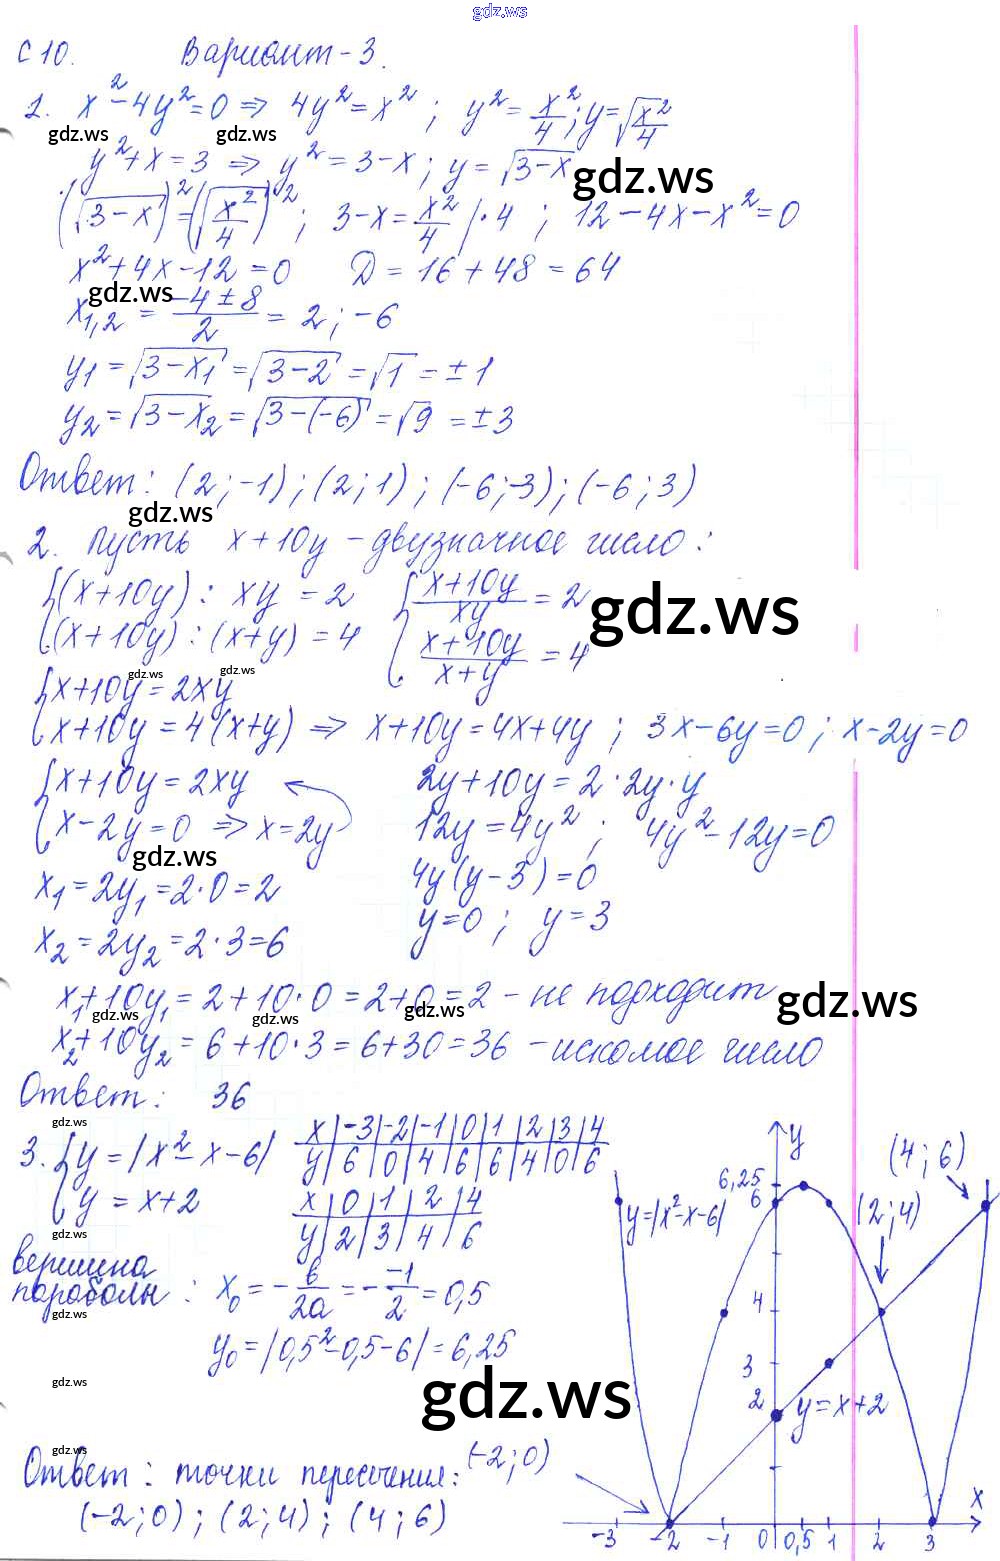 gdz.ws
С 10. Вариант-3.
1. x²-4y²=0 ⇒ 4y²=x² ; y²=x²/4 ; y=√(x²/4)
gdz.ws gdz.ws
y²+x=3 ⇒ y²=3-x ; y=√(3-x) gdz.ws
(√(3-x))²=(√(x²/4))² ; 3-x=x²/4 |·4 ; 12-4x-x²=0
x²+4x-12=0 D=16+48=64
gdz.ws
x1,2 = (-4±8)/2 = 2 ; -6
y1=√(3-x1)=√(3-2)=√1=±1
y2=√(3-x2)=√(3-(-6))=√9=±3
Ответ: (2;-1);(2;1);(-6;-3);(-6;3)
gdz.ws
2. Пусть x+10y-двузначное число:
{(x+10y): xy=2 {(x+10y)/(xy)=2 gdz.ws
(x+10y):(x+y)=4 (x+10y)/(x+y)=4
gdz.ws gdz.ws
{x+10y=2xy
x+10y=4(x+y) ⇒ x+10y=4x+4y ; 3x-6y=0 ; x-2y=0
{x+10y=2xy 2y+10y=2·2y·y
x-2y=0 ⇒ x=2y 12y=4y² ; 4y²-12y=0
gdz.ws
x1=2y1=2·0=2 4y(y-3)=0
x2=2y2=2·3=6 y=0 ; y=3
x1+10y1=2+10·0=2+0=2 - не подходит gdz.ws
gdz.ws gdz.ws
x2+10y2=6+10·3=6+30=36 -искомое число
Ответ: 36
gdz.ws
3. {y=|x²-x-6| x|-3|-2|-1|0|1|2|3|4
y|6|0|4|6|6|4|0|6
y=x+2 x|0|1|2|4
y|2|3|4|6
gdz.ws
вершина
параболы: x0=-в/2a=-(-1)/2=0,5
gdz.ws
y0=|0,5²-0,5-6|=6,25
gdz.ws
gdz.ws
gdz.ws
Ответ: точки пересечения:
(-2;0);(2;4);(4;6)
y
(4;6)
6,25
6
(2;4)
y=|x²-x-6|
4
3
2
y=x+2
(-2;0)
x
-3 -2 -1 0 0,5 1 2 3